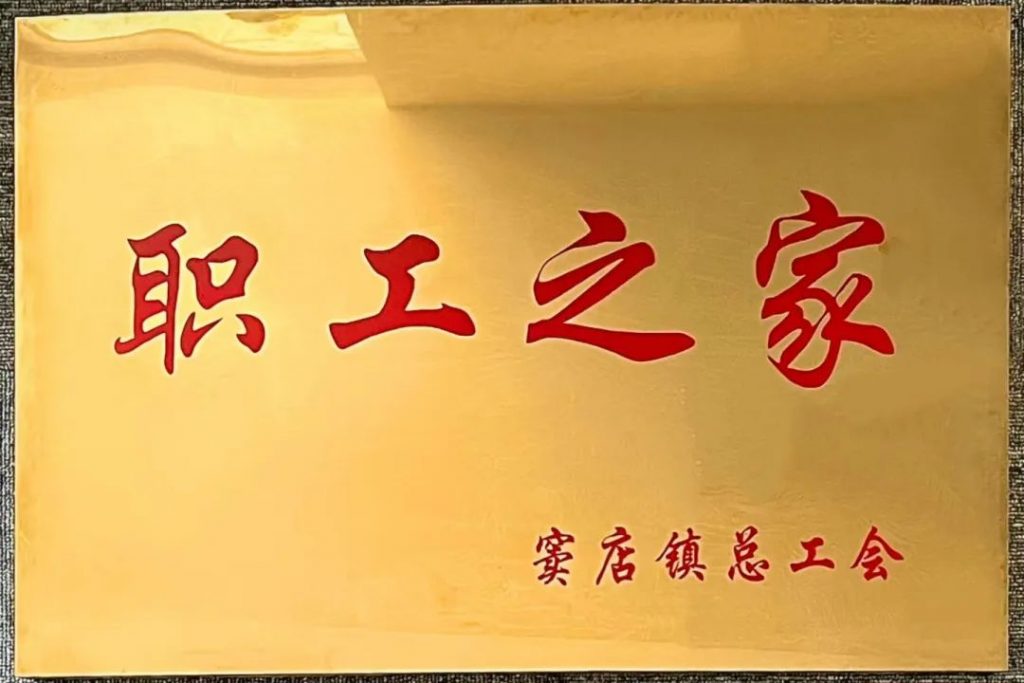 职工之家
窦店镇总工会